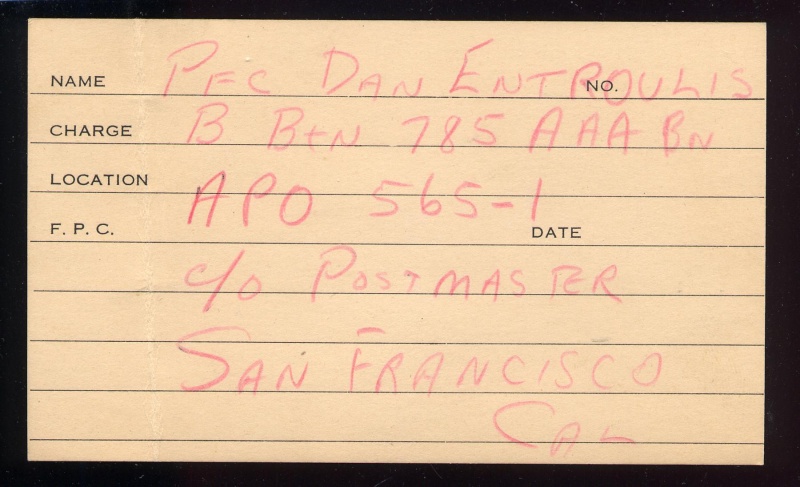 NAME PFC DAN ENTROULIS NO.
CHARGE B BTN 785 AAA BN
LOCATION APO 565-1
F. P. C. DATE
c/o POSTMASTER
SAN FRANCISCO
CAL